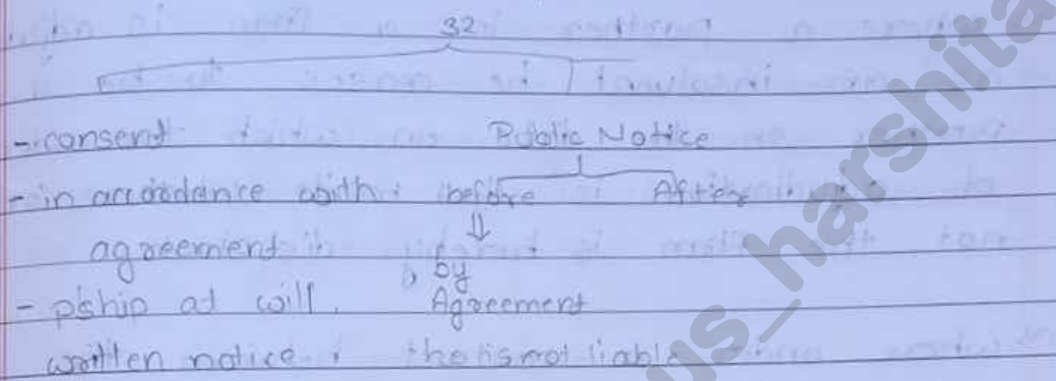 32
- consent Public Notice
- in accordance with before After
agreement by
- p'ship at will. Agreement
written notice is not liable
us_harshita